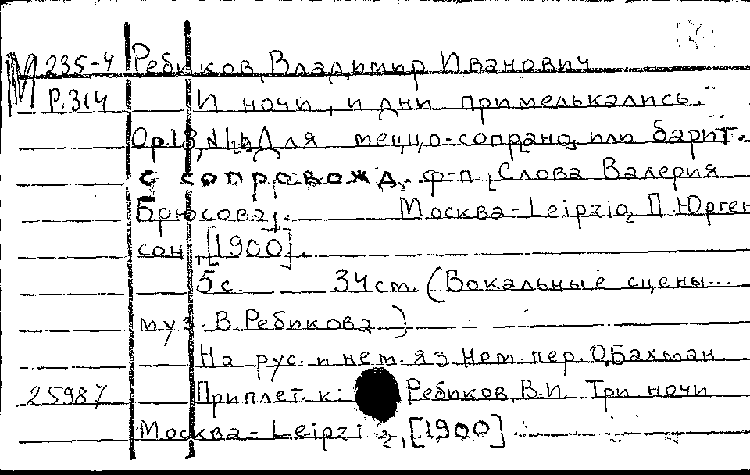 М 235-4 Ребиков, Владимир Иванович
Р.314 И ночи, и дни примелькались...
Op.13, №1. Для меццо-сопрано или барит.
с сопровожд. ф-п. Слова Валерия
Брюсова. Москва-Leipzig, П.Юрген
сон, [1900].
5 с. 34 см. (Вокальные сцены...
муз. В.Ребикова)
На рус. и нем. яз. Нем. пер. О.Бахман
25987 Приплет. к: Ребиков, В.И. Три ночи
Москва-Leipzig, [1900]